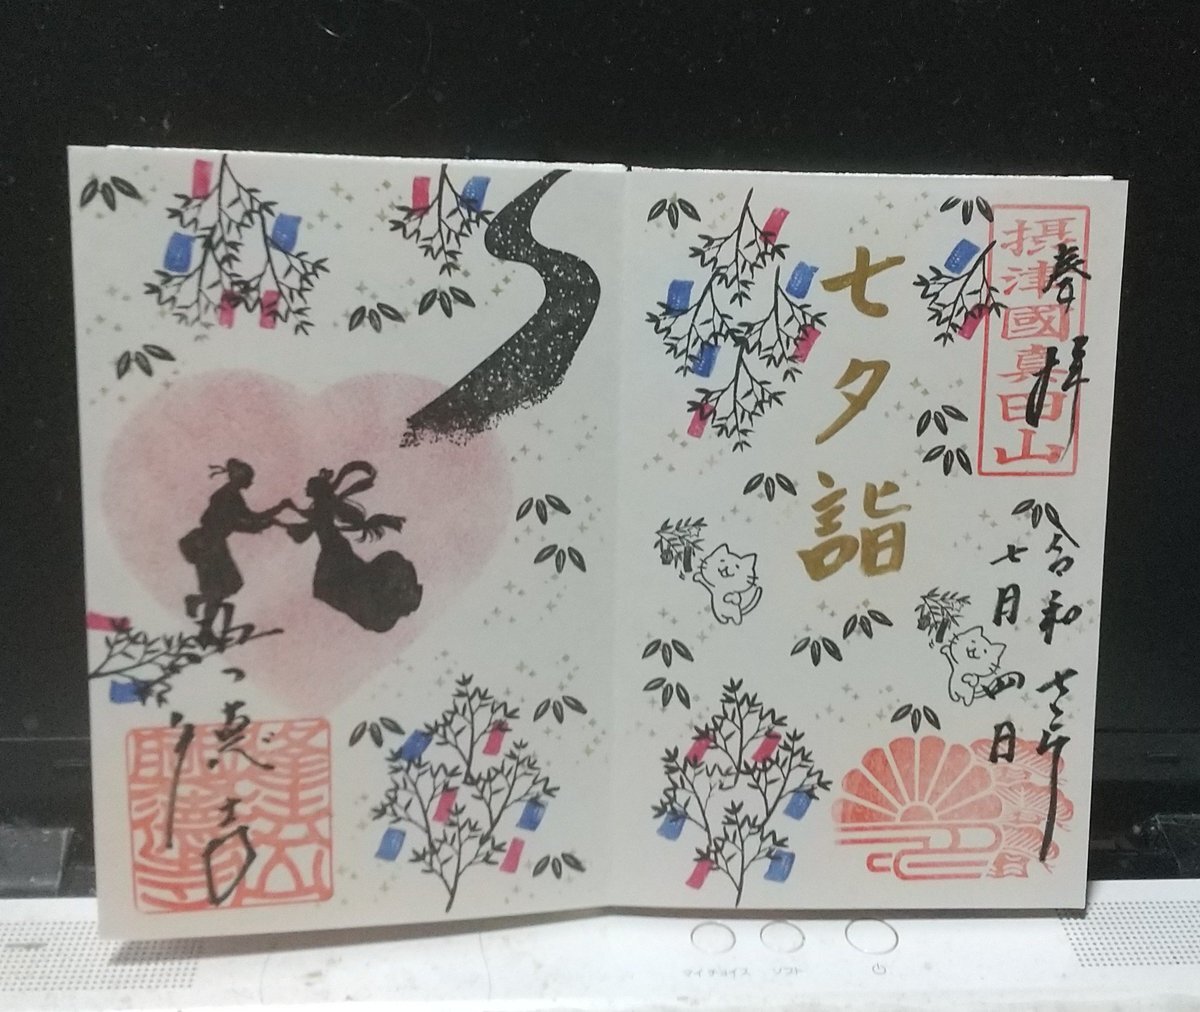 摂津國真田山
奉拝
令和七年
七月四日
七夕詣
マイチョイス ソフト